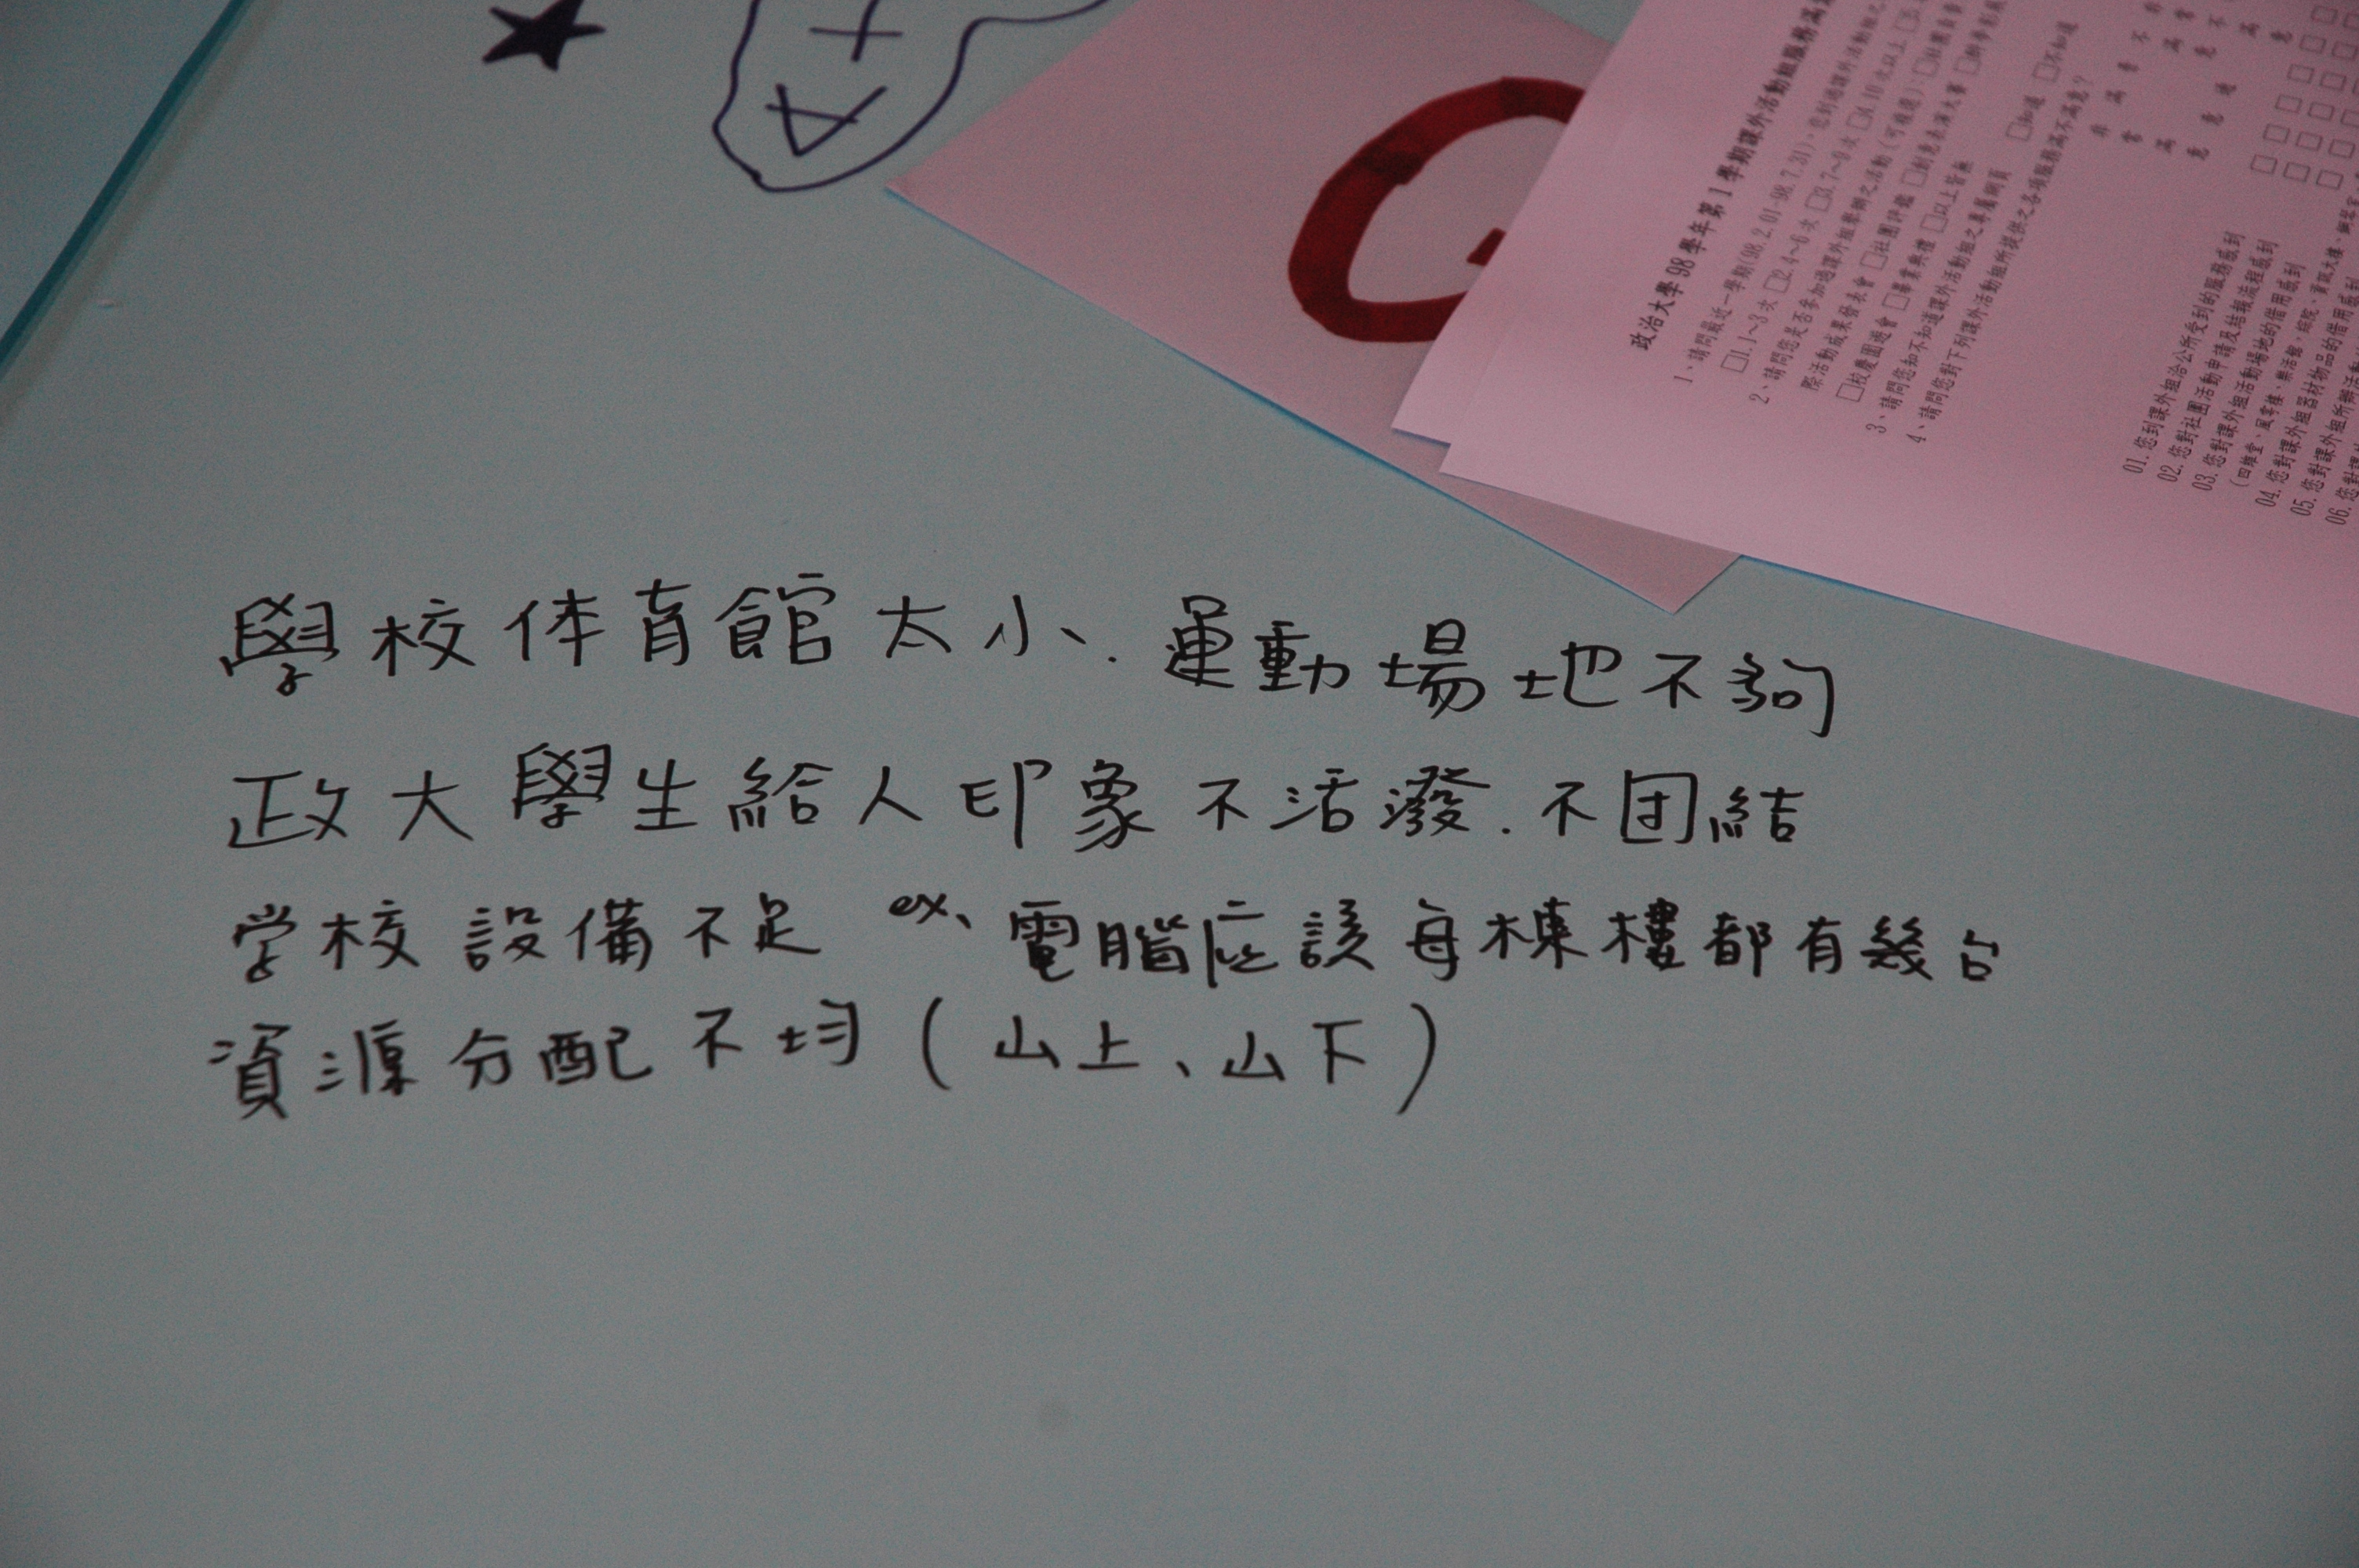 A+
G
政治大學98學年第1學期課外活動組服務滿
1、請問最近一學期(98.2.01-98.7.31)，您到過課外活動組
□1.1~3次 □2.4~6次 □3.7~9次 □4.10次以上
2、請問您是否參加過課外組舉辦之活動(可複選)：□社團
際活動成果發表會 □社團評鑑 □創意表演大賽
□校慶園遊會 □畢業典禮 □以上皆無
3、請問您知不知道課外活動組之專屬網頁 □知道 □不知道
4、請問您對下列課外活動組所提供之各項服務滿不滿意？
01.您到課外組洽公所受到的服務感到
02.您對社團活動申請及結報流程感到
03.您對課外組活動場地的借用感到
(四維堂、風雩樓、樂活館、綜院、資訊大樓、
04.您對課外組器材物品的借用感到
05.您對課外組所辦活動
06.您對課
學校体育館太小、運動場地不夠
政大學生給人印象不活潑.不团結
学校設備不足 ex、電腦应該每棟樓都有幾台
資源分配不均(山上、山下)